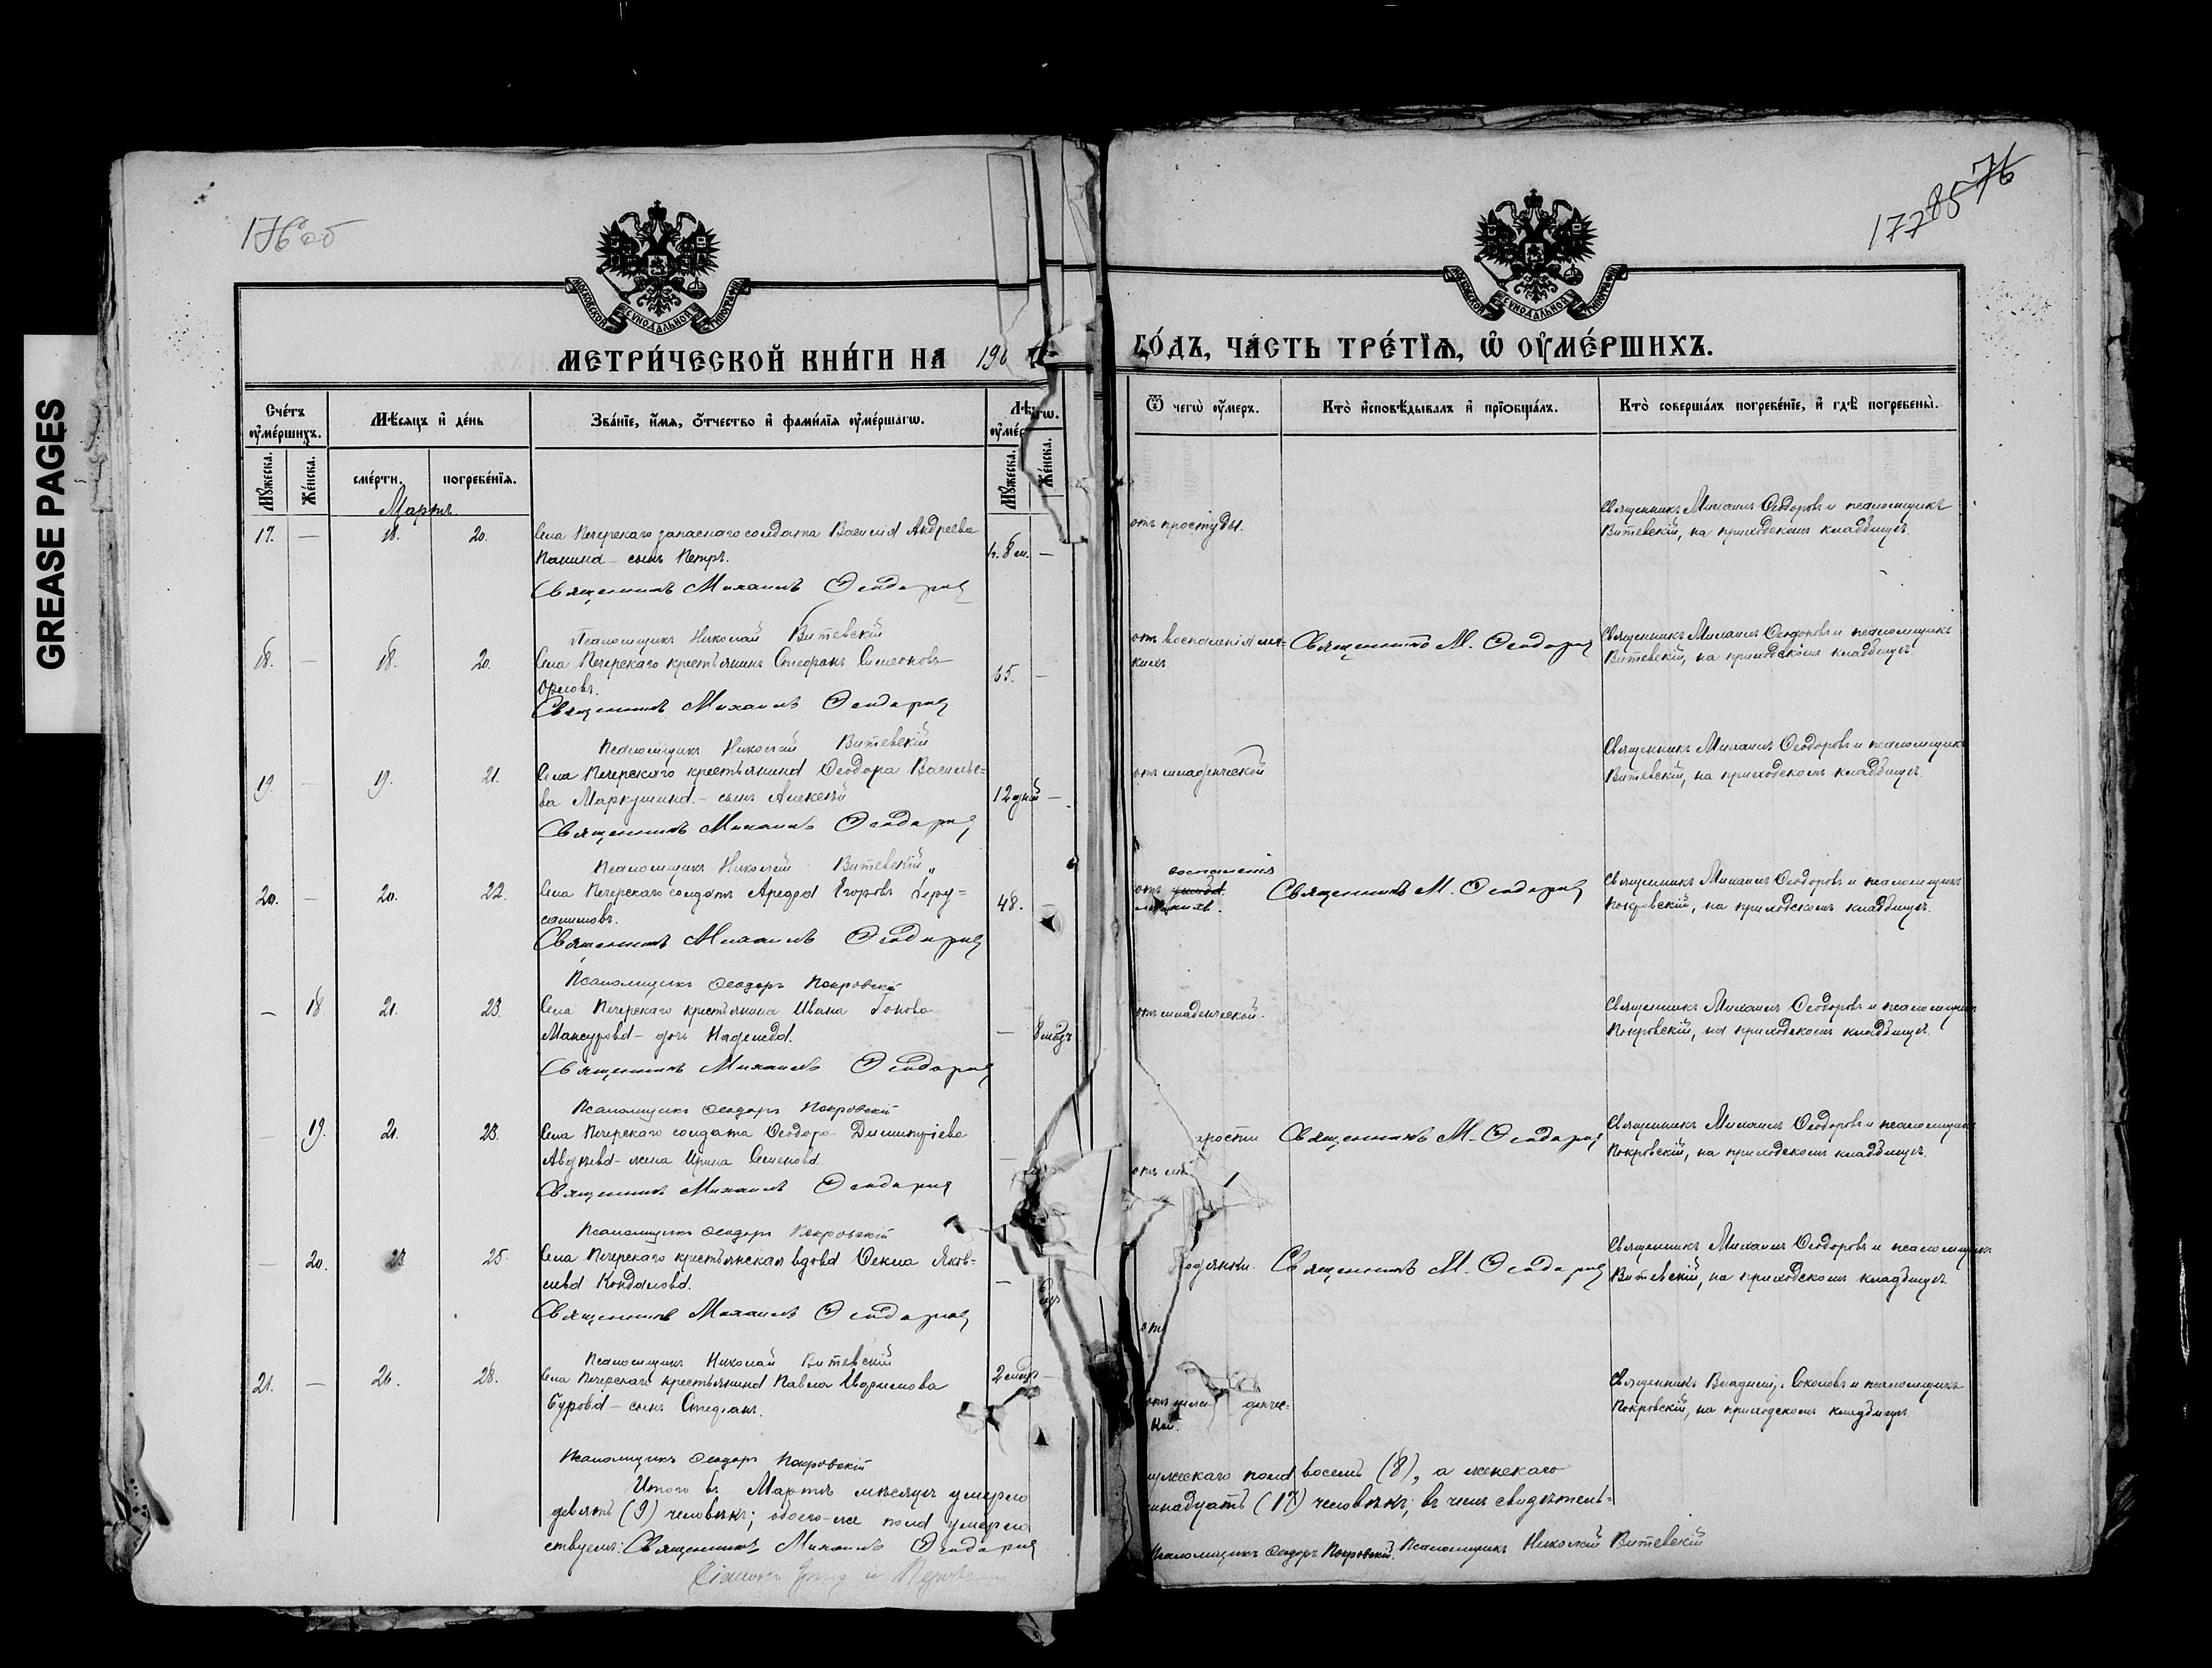 GREASE PAGES
176 об
177 85 76
МОСКОВСКОЙ СѴНОДАЛЬНОЙ ТИПОГРАФІИ
МОСКОВСКОЙ СѴНОДАЛЬНОЙ ТИПОГРАФІИ
МЕТРИ́ЧЕСКОЙ КНИ́ГИ НА 190
ГО́ДЪ, ЧА́СТЬ ТРЕ́ТІѦ, Ѡ ОУМЕ́РШИХЪ.
Сче́тъ оумершихъ.
Мѣсяцъ и де́нь
Зва́ніе, и́мя, о́тчество и фами́лія оуме́ршагѡ.
Мужеска.
Же́нска.
сме́рти.
погребе́нія.
Мужеска.
Же́нска.
Ѿ чегѡ̀ оу́меръ.
Кто̀ исповѣ́дывалъ и пріобща́лъ.
Кто̀ соверша́лъ погребе́ніе, и гдѣ̀ погребены̀.
Мартъ.
17. — 18. 20. Села Печерскаго запаснаго солдата Василія Андреева
Панина – сынъ Петръ. 8 м. —
Священникъ Михаилъ Ѳеодоровъ
отъ простуды.
Священникъ Михаилъ Ѳеодоровъ и псаломщикъ
Витевскій, на приходскомъ кладбищѣ.
Псаломщикъ Николай Витевскій
18. — 18. 20. Села Печерскаго крестьянинъ Стефанъ Симеоновъ
Орловъ. 65. —
Священникъ Михаилъ Ѳеодоровъ
отъ воспаленія лег=
кихъ.
Священникъ М. Ѳеодоровъ
Священникъ Михаилъ Ѳеодоровъ и псаломщикъ
Витевскій, на приходскомъ кладбищѣ.
Псаломщикъ Николай Витевскій
19. — 19. 21. Села Печерскаго крестьянина Ѳеодора Василье=
ва Маркушина – сынъ Алексѣй 12 дней —
Священникъ Михаилъ Ѳеодоровъ
отъ младенческой
Священникъ Михаилъ Ѳеодоровъ и псаломщикъ
Витевскій, на приходскомъ кладбищѣ.
Псаломщикъ Николай Витевскій
20. — 20. 22. Села Печерскаго солдатъ Егоровъ Іеру=
салимовъ. 48. —
Священникъ Михаилъ Ѳеодоровъ
воспаленія
отъ
легкихъ.
Священникъ М. Ѳеодоровъ
Священникъ Михаилъ Ѳеодоровъ и псаломщикъ
Покровскій, на приходскомъ кладбищѣ.
Псаломщикъ Ѳеодоръ Покровскій
— 18. 21. 23. Села Печерскаго крестьянина Ивана
Мансурова – дочь Надежда. — 8 мѣсяц
Священникъ Михаилъ Ѳеодоровъ
отъ младенческой.
Священникъ Михаилъ Ѳеодоровъ и псаломщикъ
Покровскій, на приходскомъ кладбищѣ.
Псаломщикъ Ѳеодоръ Покровскій
— 19. 21. 23. Села Печерскаго солдата Ѳеодора Димитріева
Авдѣева – жена Ирина Семенова. —
Священникъ Михаилъ Ѳеодоровъ
Священникъ М. Ѳеодоровъ
Священникъ Михаилъ Ѳеодоровъ и псаломщикъ
Покровскій, на приходскомъ кладбищѣ.
Псаломщикъ Ѳеодоръ Покровскій
— 20. 23 25. Села Печерскаго крестьянская вдова Ѳекла Яков=
лева Кондалова. —
Священникъ Михаилъ Ѳеодоровъ
отъ водянки.
Священникъ М. Ѳеодоровъ
Священникъ Михаилъ Ѳеодоровъ и псаломщикъ
Витевскій, на приходскомъ кладбищѣ.
Псаломщикъ Николай Витевскій
21. — 26. 28. Села Печерскаго крестьянина Павла
Бурова – сынъ Стефанъ. —
отъ младенчес=
кой.
Священникъ Соколовъ и псаломщикъ
Покровскій, на приходскомъ кладбищѣ.
Псаломщикъ Ѳеодоръ Покровскій
Итого въ Мартѣ мѣсяцѣ умерло мужескаго пола восемь (8), а женскаго
девять (9) человѣкъ; обоего-же пола умерло (17) человѣкъ; въ чемъ свидѣтель=
ствуемъ: Священникъ Михаилъ Ѳеодоровъ
Псаломщикъ Ѳеодоръ Покровскій. Псаломщикъ Николай Витевскій